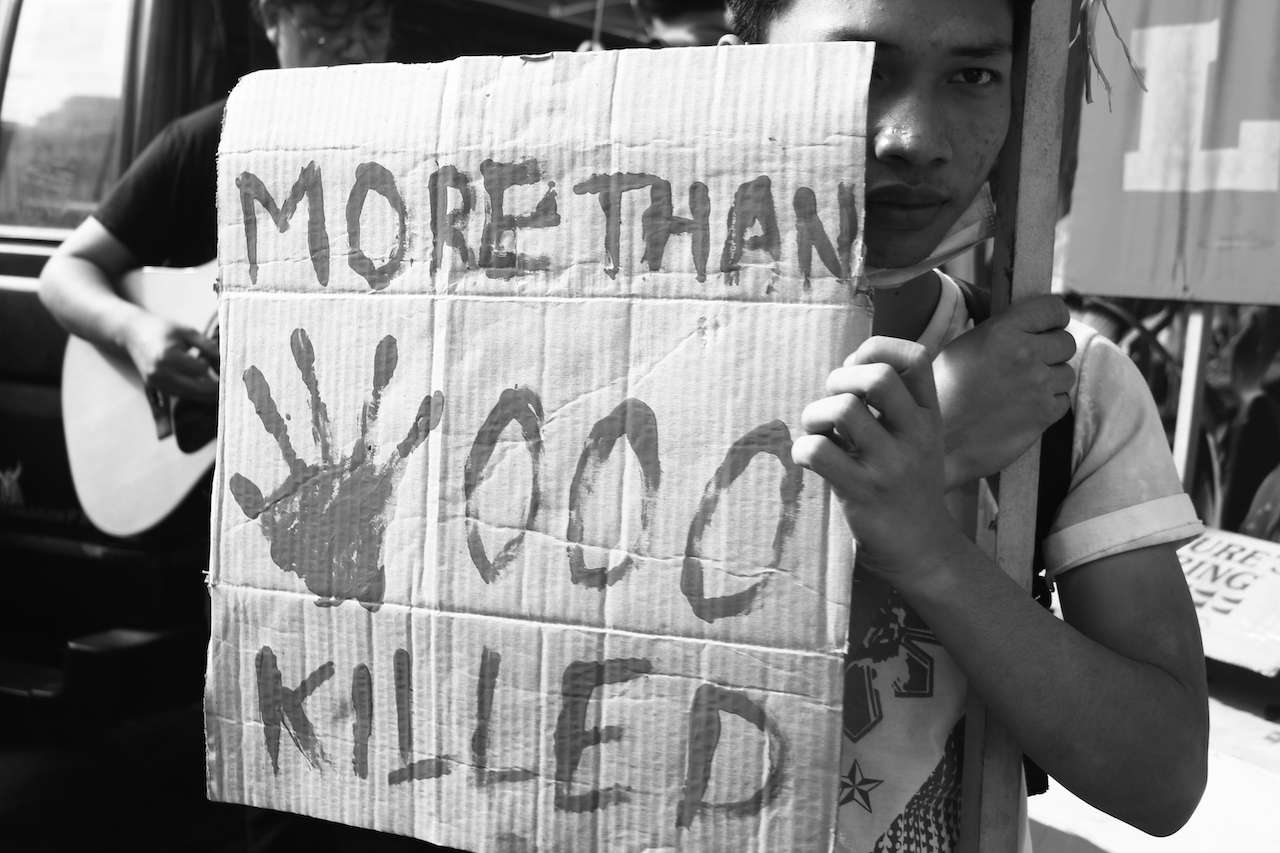 MORE THAN
000
KILLED
URE S
ING